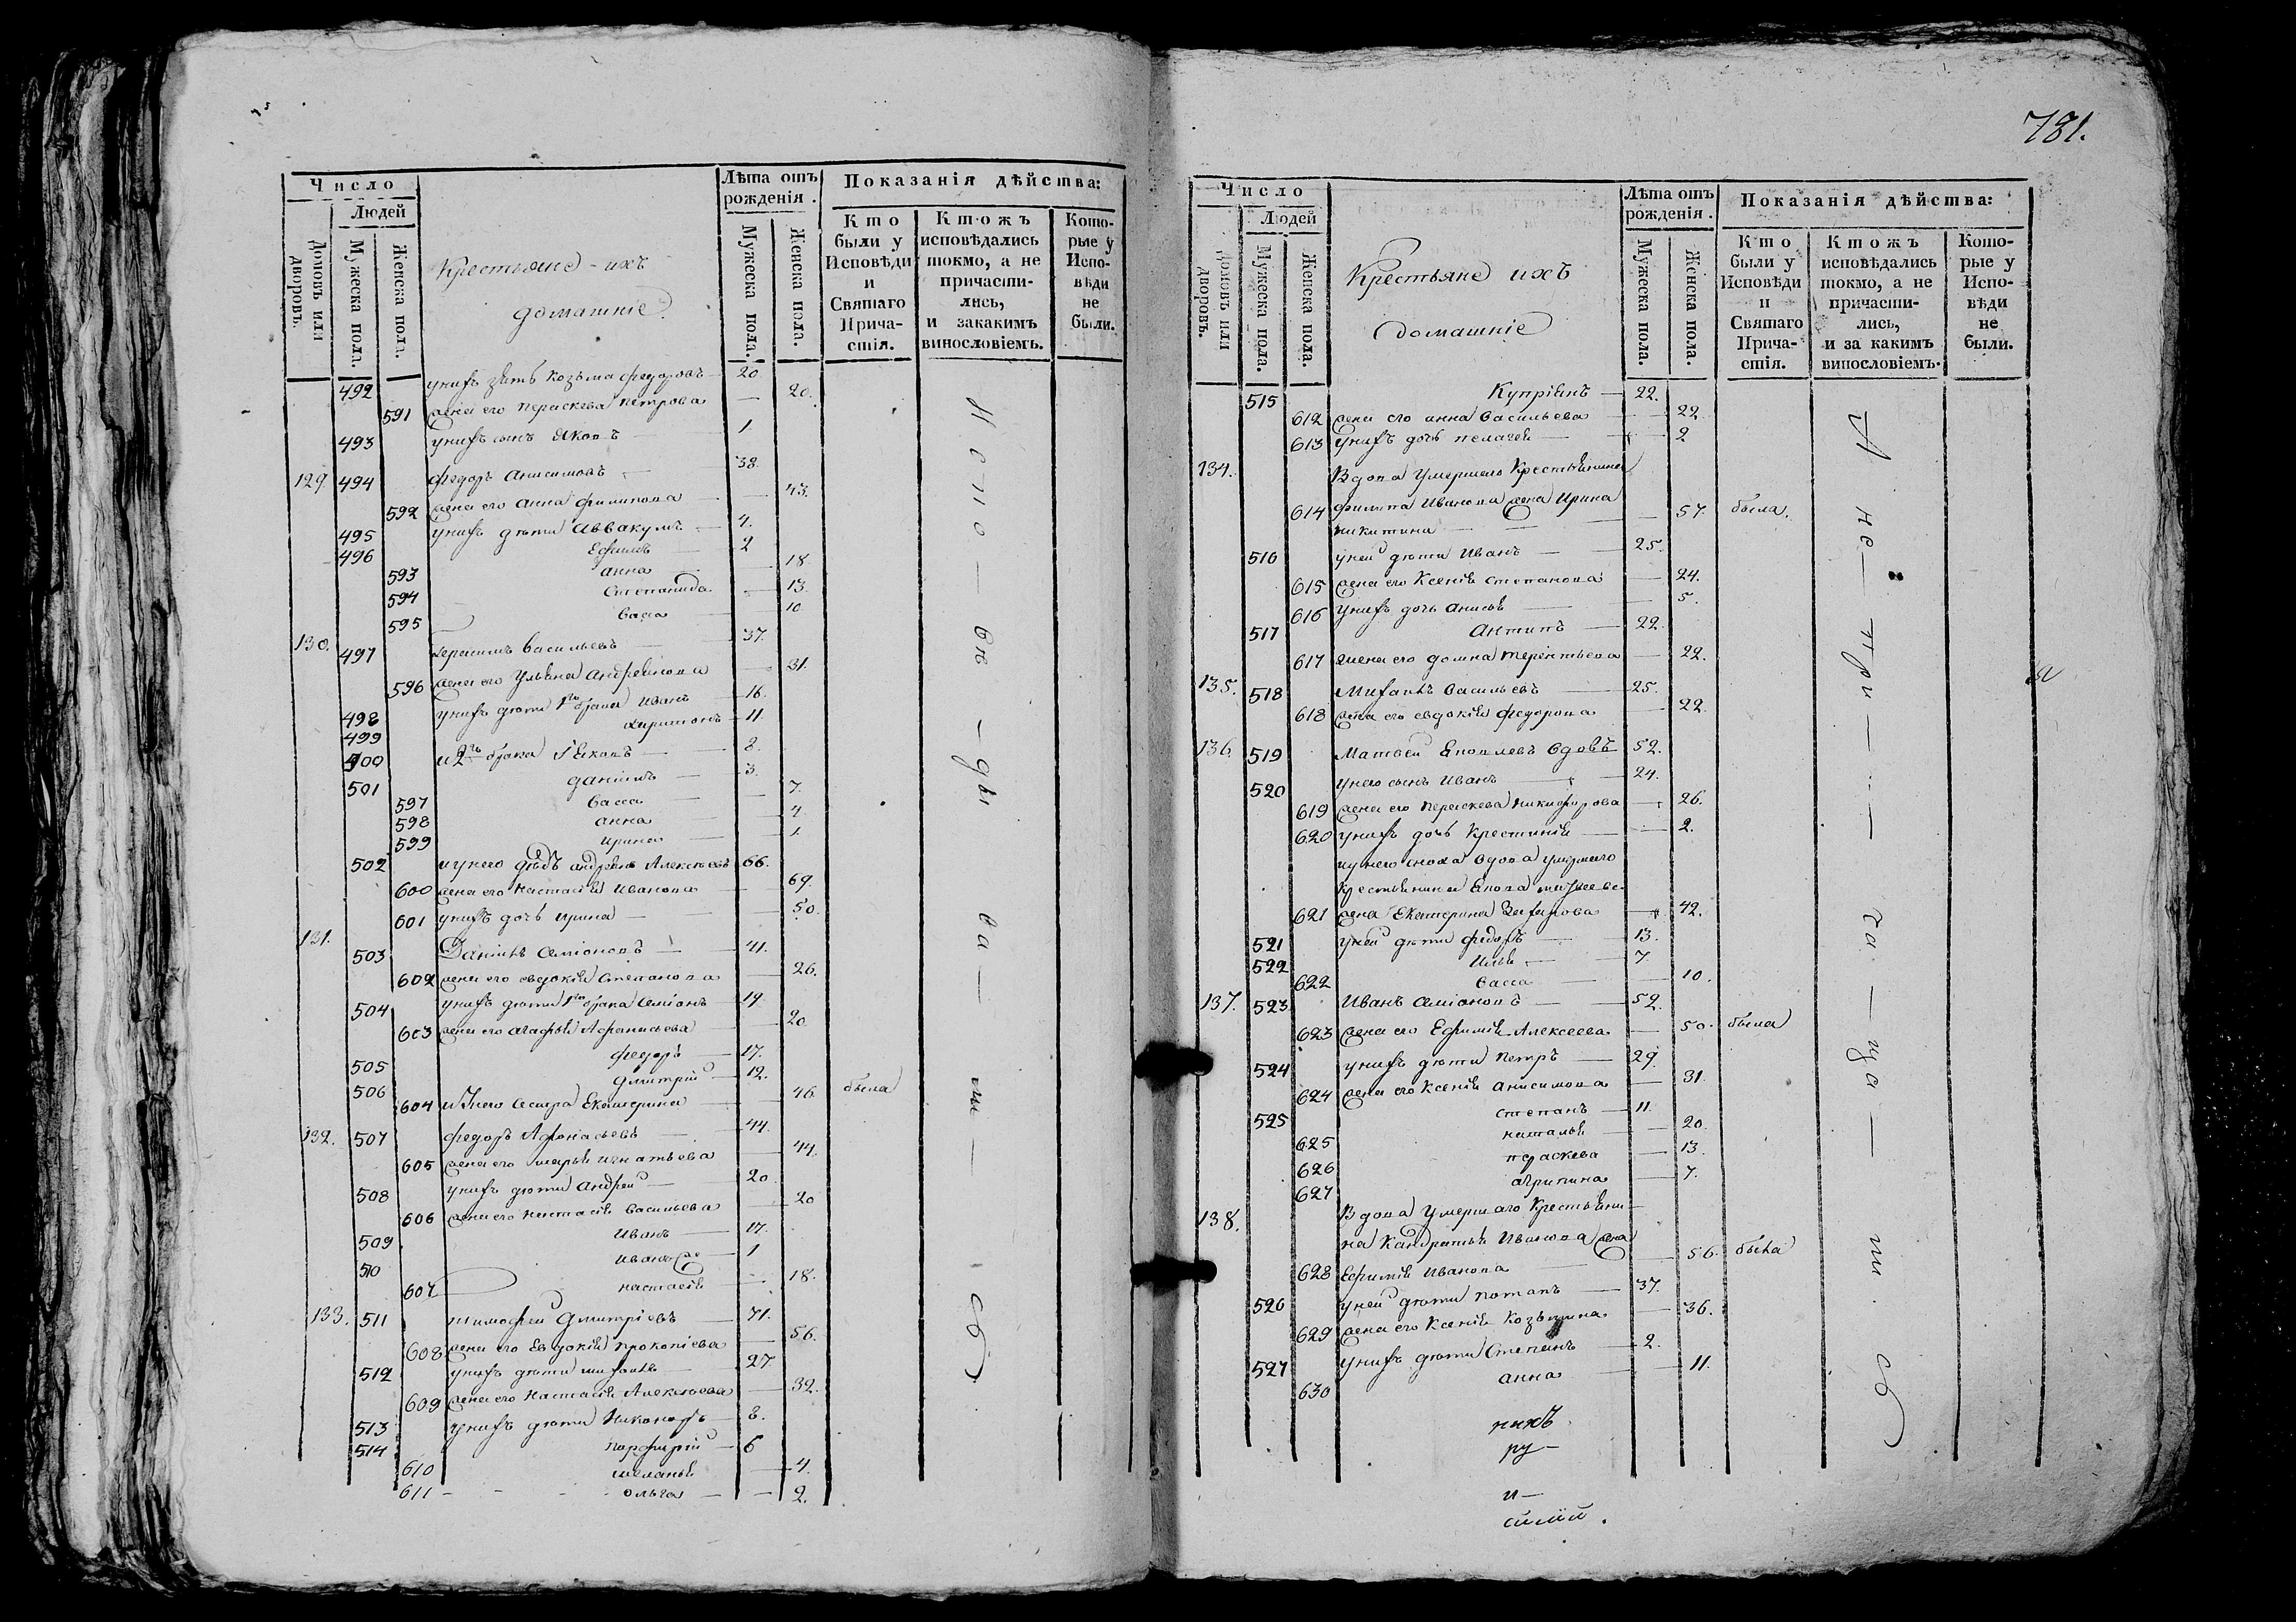 Число
Людей
Домовъ или дворовъ.
Мужеска пола.
Женска пола.
Крестьяне - ихъ
домашніе.
Лѣта отъ рожденія.
Мужеска пола.
Женска пола.
Показанія дѣйства:
Кто были у Исповѣди и Святаго Причастія.
Ктожъ исповѣдались токмо, а не причастились, и закакимъ винословіемъ.
Которые у Исповѣди не были.
492 унихъ зять Козьма федоровъ 20
591 жена его параскева петрова — 20.
493 унихъ сынъ Яковъ — 1
129. 494 федоръ Анисимовъ — 38.
592 жена его Анна филипова — 43.
495 унихъ дѣти Аввакумъ — 4.
496 Ефимъ — 2
593 анна — 18
594 Степанида — 13.
595 васса — 10
130. 497 Герасимъ васильевъ — 37.
596 жена его Ульяна Андреянова — 31.
498 унихъ дѣти 1го брака Иванъ — 16.
499 — 11
500 и 2го брака Яковъ — 8.
501 даніилъ — 3.
597 васса — 7.
598 анна — 4
599 ирина — 1
502 иунего дѣдъ андреянъ Алексѣевъ 66.
600 жена его настасія Иванова — 69.
601 унихъ дочь ирина — 50.
131. 503 Даніилъ Семіоновъ — 41.
602 жена его евдокія Степанова — 26.
504 унихъ дѣти 1го брака Семіонъ — 19
603 жена его агафья Афонасьева — 20
505 федоръ — 17.
506 дмитрій — 12.
604 и Унего Сестра Екатерина — 46. была
132. 507 федоръ Афонасьевъ — 44.
605 жена его марья игнатьева — 44.
508 унихъ дѣти Андрей — 20
606 жена его настасія васильева — 20
509 Иванъ — 17.
510 Иванъ же — 1
607 настасія — 18.
133. 511 тимофей Дмитріевъ — 71.
608 жена его Евдокія прокопіева — 56.
512 унихъ дѣти михаилъ — 27
609 жена его настасія Алексѣева — 32.
513 унихъ дѣти Никоноръ — 8.
514 парфирій — 6
610 меланья — 4.
611 — ольга — 2.
Испо — вѣ — ды ва — ты — сь
781.
Число
Людей
Домовъ или дворовъ.
Мужеска пола.
Женска пола.
Крестьяне ихъ
домашніе
Лѣта отъ рожденія.
Мужеска пола.
Женска пола.
Показанія дѣйства:
Кто были у Исповѣди и Святаго Причастія.
Ктожъ исповѣдались токмо, а не причастились, и за какимъ винословіемъ.
Которые у Исповѣди не были.
515 Купріянъ — 22.
612 жена его анна васильева — 22
613 унихъ дочь пелагея — 2
134. Вдова Умершаго Крестьянина
614 филипа Иванова жена Ирина — 57. была.
никитина —
516 уней дѣти Иванъ — 25.
615 жена его Ксенія степанова — 24.
616 унихъ дочь анисья — 5.
517 Антипъ — 22.
617 жена его домна терентьева — 22.
135. 518 Михаилъ васильевъ — 25.
618 жена его евдокія федорова — 22
136. 519 Матвей Яковлевъ вдовъ 52.
520 унего сынъ Иванъ — 24.
619 жена его параскева никифорова — 26.
620 унихъ дочь Крестинія — 2.
иунего сноха вдова умершаго
Крестьянина Якова
621 жена Екатерина — 42.
521 уней дѣти федоръ — 13.
522 илья — 7
622 васса — 10.
137. 523 Иванъ Семіоновъ — 52.
623 жена его Ефимія Алексеева — 50. была
524 унихъ дѣти петръ — 29.
624 жена его Ксенія Анисимова — 31.
525 степанъ — 11.
625 наталья — 20.
626 параскева — 13.
627 агрипина — 7.
138. Вдова Умершаго Крестьяни-
на Кандратья Иванова жена
628 Ефимія Иванова — 56. была
526 уней дѣти потапъ — 37.
629 жена его Ксенія Козьмина — 36.
527 унихъ дѣти Степанъ — 2.
630 анна — 11.
ру —
и —